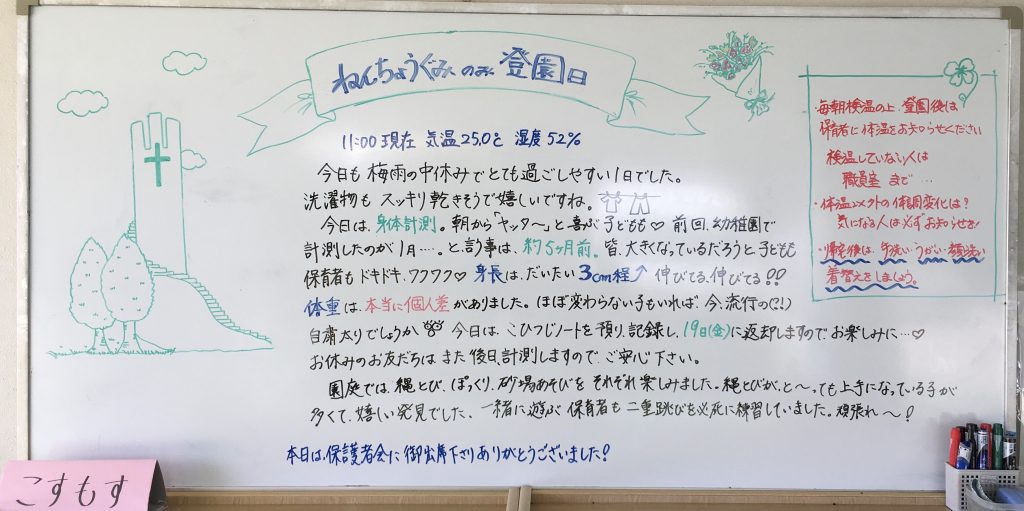 ねんちょうぐみ のみ 登園日
11:00 現在 気温 25.0℃ 湿度 52%
今日も 梅雨の中休みでとても過ごしやすい1日でした。
洗濯物も スッキリ 乾きそうで嬉しいですね。
今日は、身体計測。朝から「ヤッタ〜」と喜ぶ子ども♡ 前回、幼稚園で
計測したのが 1月‥‥。と言う事は、約5ヶ月前。皆、大きくなっているだろうと子ども
保育者も ドキドキ、ワクワク♡ 身長は、だいたい 3cm程↑ 伸びてる、伸びてる!!
体重は、本当に個人差がありました。ほぼ変わらない子もいれば、今、流行の(?!)
自粛太りでしょうか 今日は、こひつじノートを預り、記録し、19日(金)に返却しますので、お楽しみに…♡
お休みのお友だちは また後日、計測しますので、ご安心下さい。
園庭では、縄とび、ぽっくり、砂場あそびを それぞれ楽しみました。縄とびが、と〜っても上手になっている子が
多くて、嬉しい発見でした。一緒に遊ぶ 保育者も 二重跳びを必死に練習していました。頑張れ〜!
本日は、保護者会に 御出席下さりありがとうございました!
・毎朝検温の上、登園後は
保育者に体温をお知らせください
検温していない人は
職員室 まで…
・体温以外の体調変化は?
気になる人は必ずお知らせを!
・帰宅後は、手洗い・うがい・顔洗い
着替えをしましょう。
こすもす